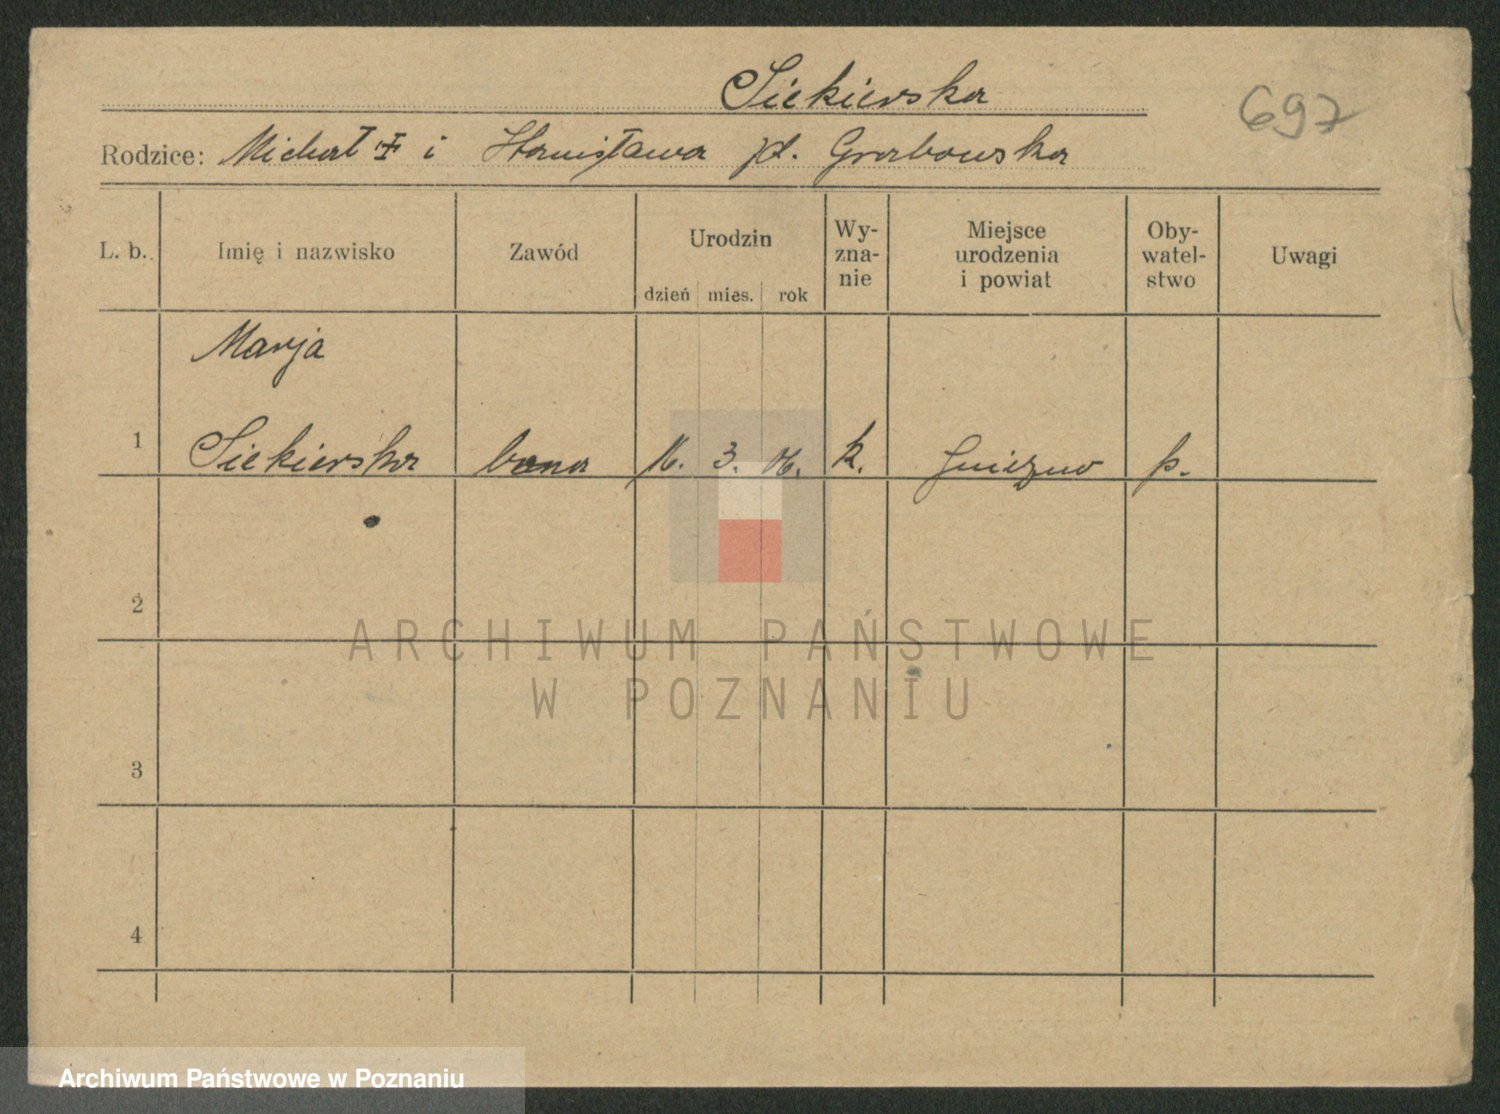 Siekierska
697
Rodzice: Michał ✝ i Stanisława zd. Grabowska
L. b. Imię i nazwisko Zawód Urodzin dzień mies. rok Wy-zna-nie Miejsce urodzenia i powiat Oby-watel-stwo Uwagi
Marja
1 Siekierska bona 16. 3. 06. k. Gniezno p.
2
3
4
ARCHIWUM PAŃSTWOWE
W POZNANIU
Archiwum Państwowe w Poznaniu